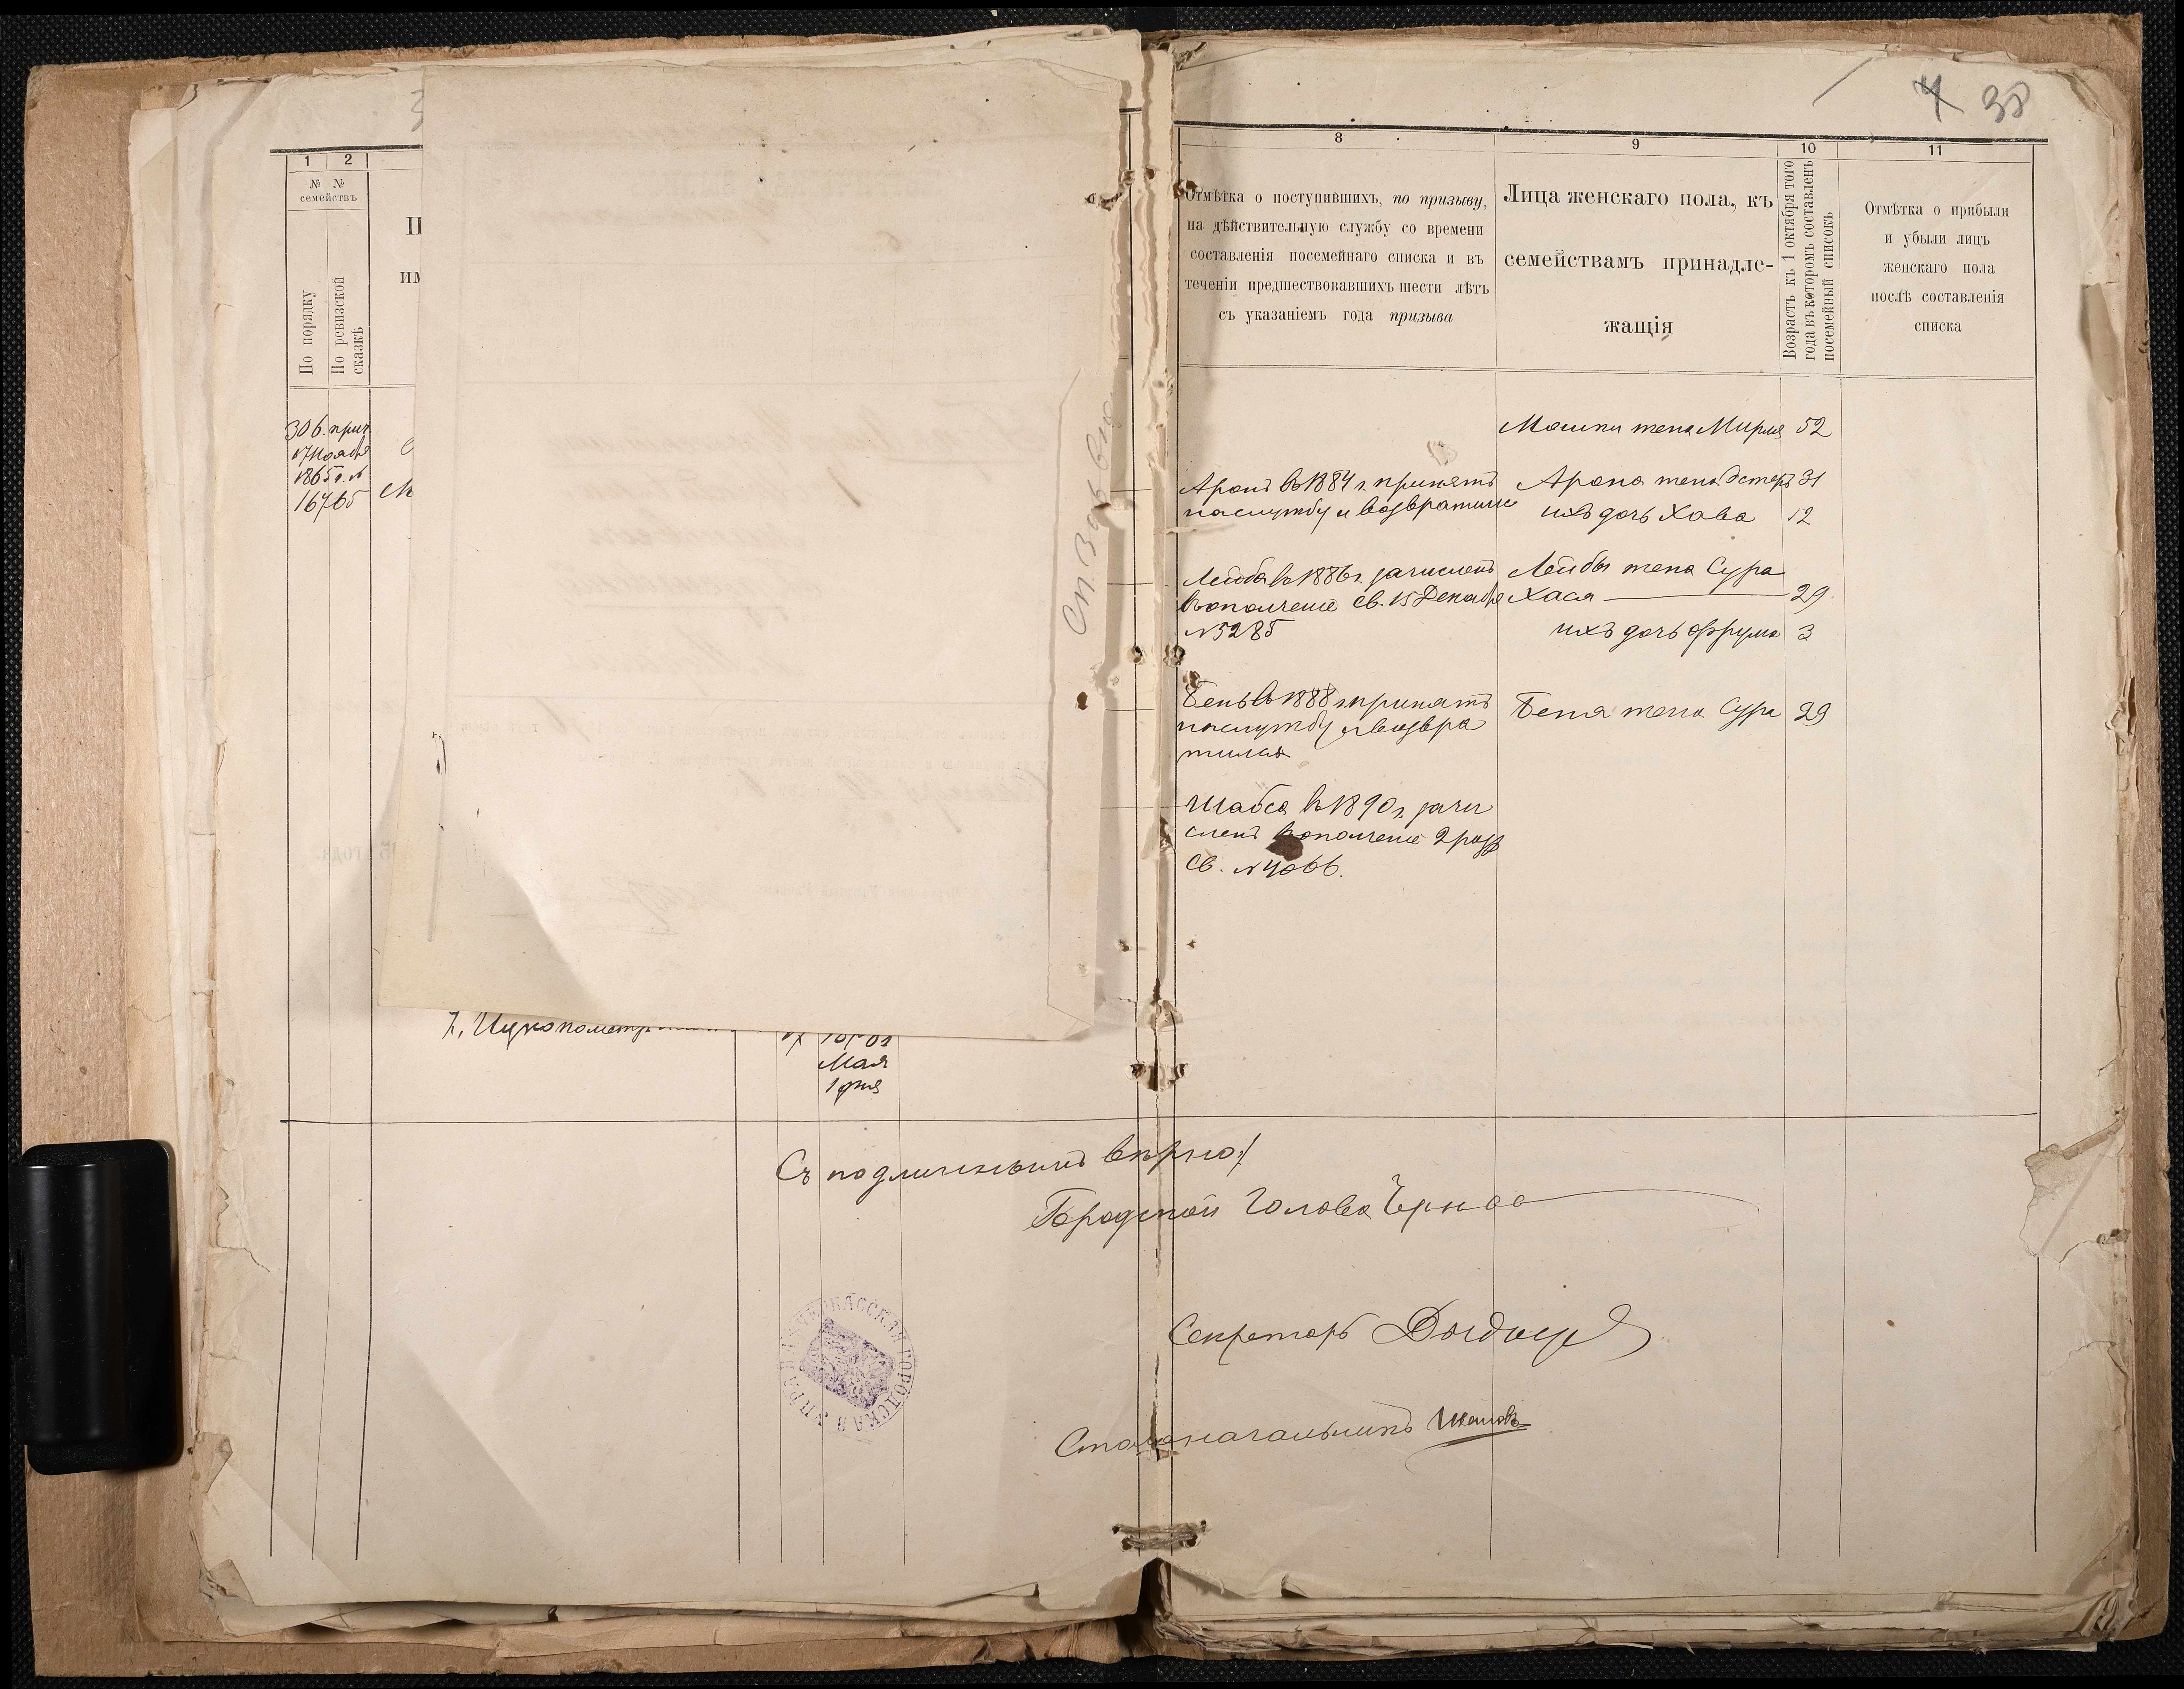 1 2
№ №
семействъ
По порядку
По ревизской
сказкѣ
П
им
306. прич.
17 Ноября
1865 г. №
16765
7, Ицко
Мая
1 дня
4 38
8 9 10 11
Отмѣтка о поступившихъ, по призыву,
на дѣйствительную службу со времени
составленія посемейнаго списка и въ
теченіи предшествовавшихъ шести лѣтъ
съ указаніемъ года призыва
Лица женскаго пола, къ
семействамъ принадле-
жащія
Возрастъ къ 1 октября того
года въ которомъ составленъ
посемейный списокъ
Отмѣтка о прибыли
и убыли лицъ
женскаго пола
послѣ составленія
списка
Мошки жена Мирля 52
Аронъ въ 1884 г. принятъ
на службу и возвратился
Арона жена Эстеръ 31
ихъ дочь Хава 12
Лейба въ 1886 г. зачисленъ
въ ополченіе св. 15 Декабря
№ 5285
Лейбы жена Сура
Хася 29
ихъ дочь Фрума 3
Бень въ 1888 г. принятъ
на службу и возвра
тился
Беня жена Сура 29
Шабса въ 1890 г. зачи
сленъ въ ополченіе 2 разр
Св. № 4066.
Съ подлиннымъ вѣрно:
Городской Голова
Секретарь
Столоначальникъ
ЧЕРКАССКАЯ ГОРОДСКАЯ УПРАВА